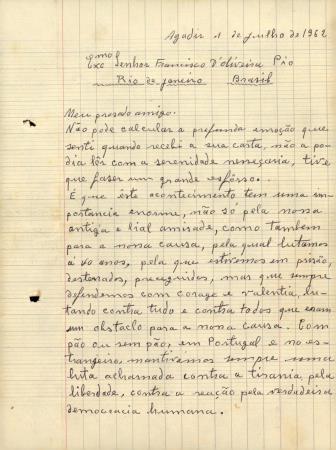 Agadir 1 de julho de 1962
Exmo Senhor Francisco D'oliveira Pio
Rio de janeiro Brasil
Meu presado amigo.
Não pode calcular a profunda emoção que
senti quando recebi a sua carta, não a po-
dia lêr com a serenidade necessaria, tive
que faser um grande esfôrso.
É que êste acontecimento tem uma im-
portancia enorme, não só pela nossa
antiga e lial amisade, como tambem
para a nossa causa, pela qual lutamos
a 40 anos, pela que estivemos em prisão,
desterrados, preseguidos, mas que sempre
defendemos com corage e valentia, lu-
tando contra tudo e contra todos que eram
um obstaclo para a nossa causa. Com
pão ou sem pão, em Portugal e no es-
trangeiro, mantivemos sempre uma
luta acharnada contra a tirania pela
liberdade, contra a reação pela verdadeira
democracia humana.